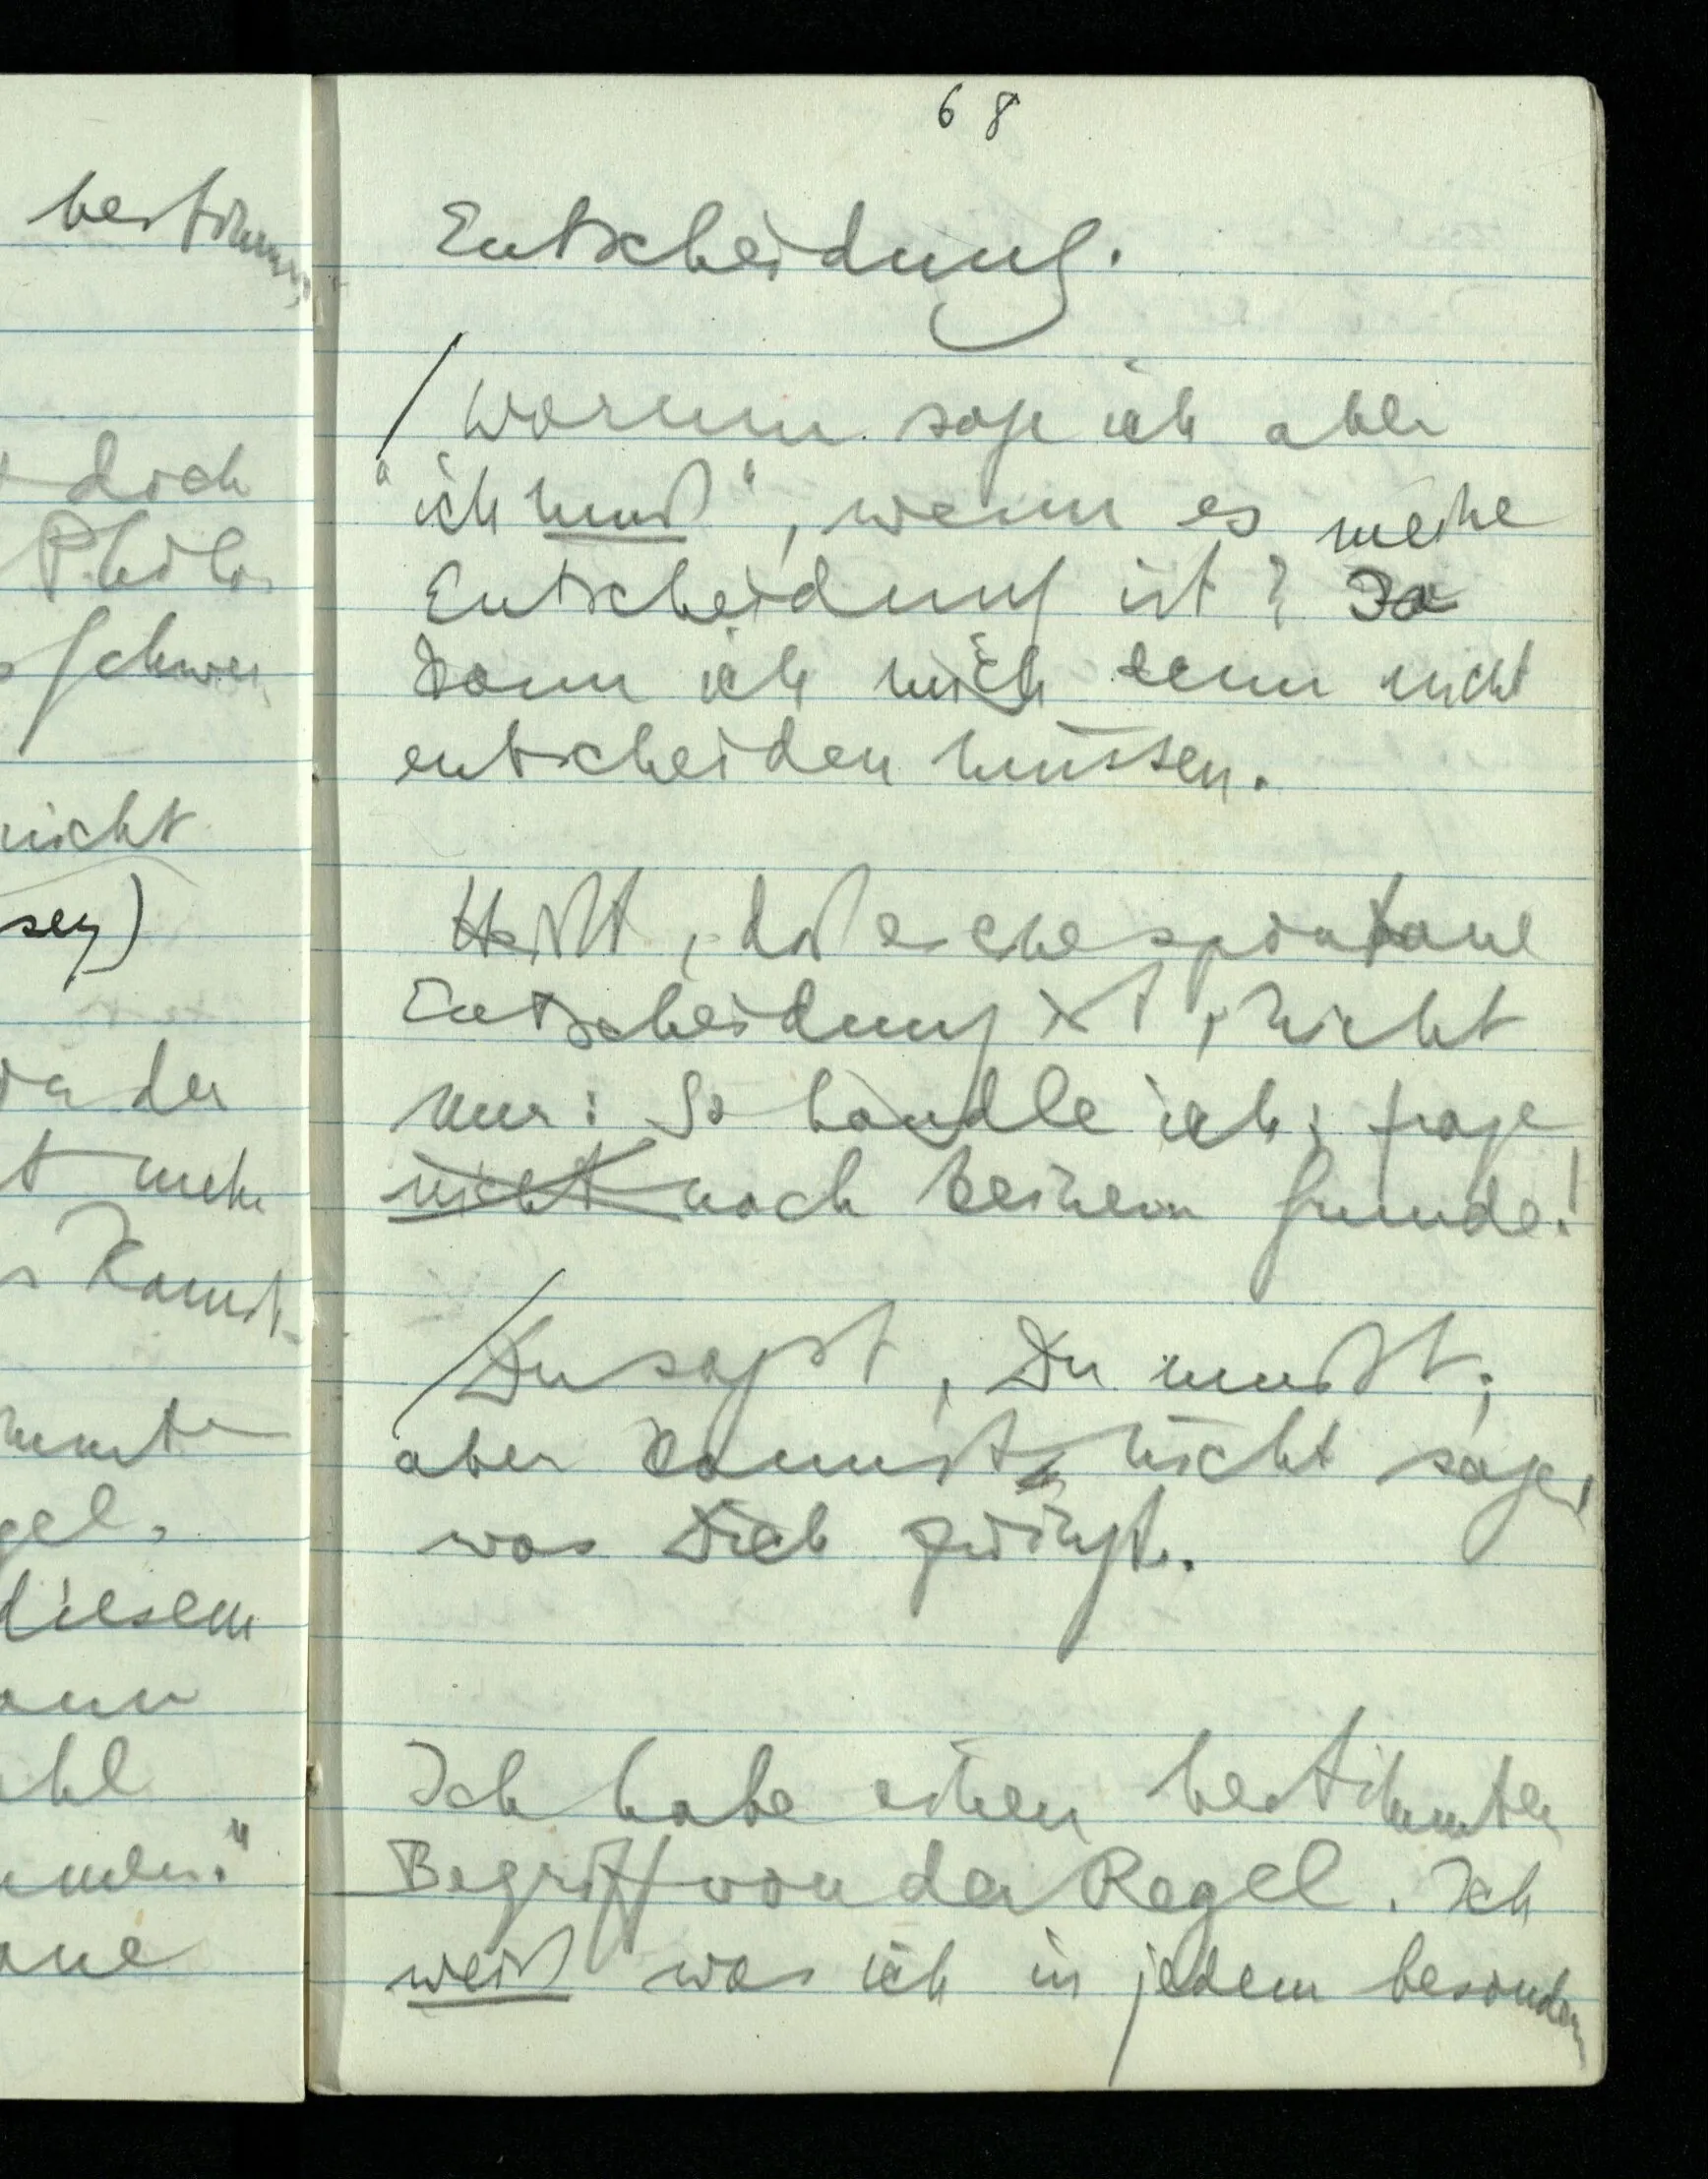 bestimm
doch
Philo
schwer
nicht
sey)
von der
mehr
gel.
diesem
68
Entscheidung.
/ Warum sage ich aber
"ich muß", wenn es meine
Entscheidung ist?
Kann ich mich denn nicht
entscheiden müssen.
Heißt, daß es eine spontane
Entscheidung ist, nicht
nur: So handle ich; frage
nicht nach keinem Grunde!
/ Du sagst, Du mußt;
aber kannst nicht sagen,
was Dich zwingt.
Ich habe einen bestimmten
Begriff von der Regel. Ich
weiß was ich in jedem besondern